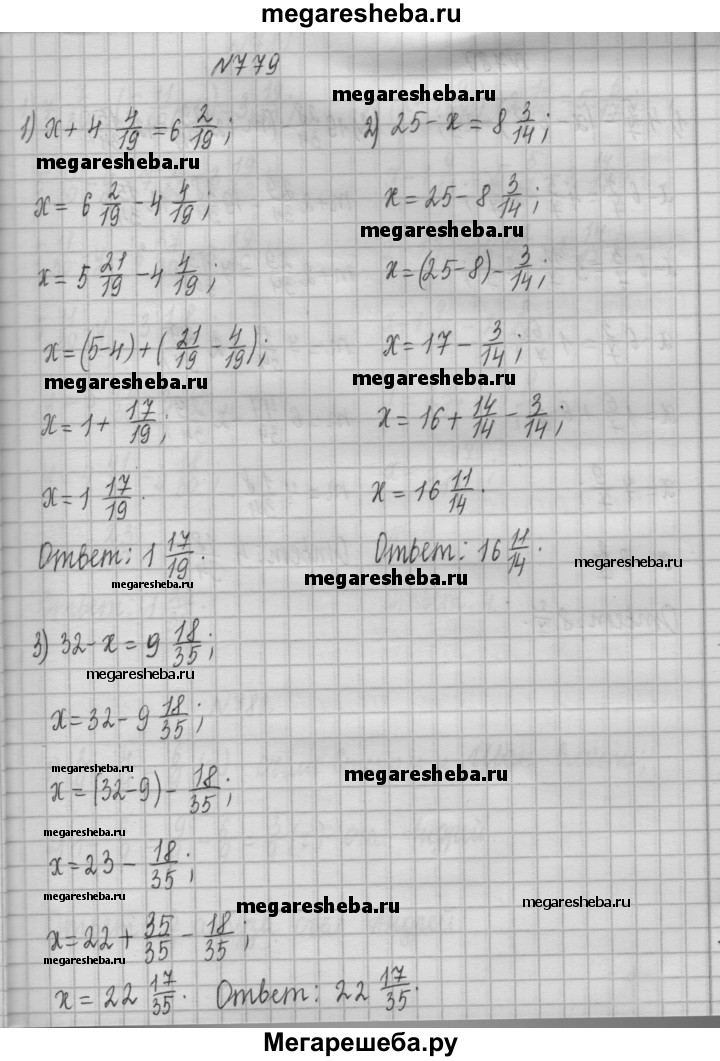 megaresheba.ru
№779
megaresheba.ru
1) x + 4 4/19 = 6 2/19;
megaresheba.ru
x = 6 2/19 - 4 4/19;
x = 5 21/19 - 4 4/19;
x = (5-4) + (21/19 - 4/19);
megaresheba.ru
x = 1 + 17/19;
x = 1 17/19.
Ответ: 1 17/19.
megaresheba.ru
2) 25 - x = 8 3/14;
x = 25 - 8 3/14;
megaresheba.ru
x = (25-8) - 3/14;
x = 17 - 3/14;
megaresheba.ru
x = 16 + 14/14 - 3/14;
x = 16 11/14.
Ответ: 16 11/14.
megaresheba.ru
megaresheba.ru
3) 32 - x = 9 18/35;
megaresheba.ru
x = 32 - 9 18/35;
megaresheba.ru
megaresheba.ru
x = (32-9) - 18/35;
megaresheba.ru
x = 23 - 18/35;
megaresheba.ru
megaresheba.ru
megaresheba.ru
x = 22 + 35/35 - 18/35;
megaresheba.ru
x = 22 17/35. Ответ: 22 17/35.
Мегарешеба.ру